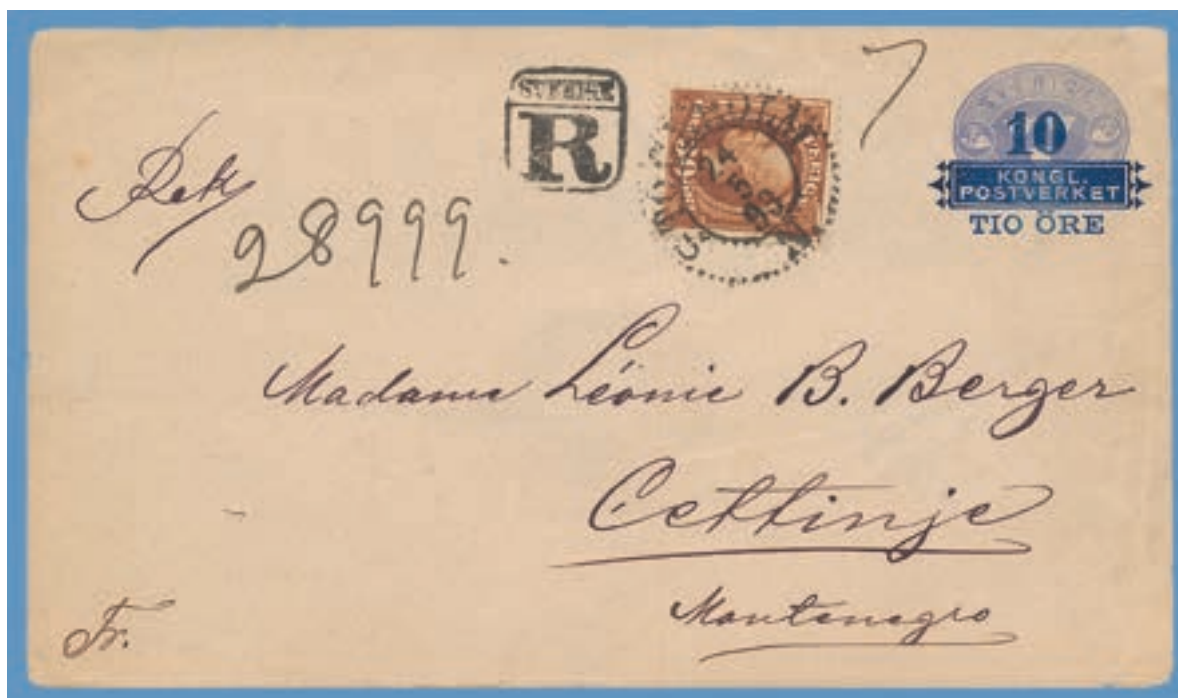 SVERIGE
R
7
SVERIGE
10
KONGL.
POSTVERKET
TIO ÖRE
24
99
Rek
28999.
Madame Léonie B. Berger
Cettinje
Montenegro
Fr.